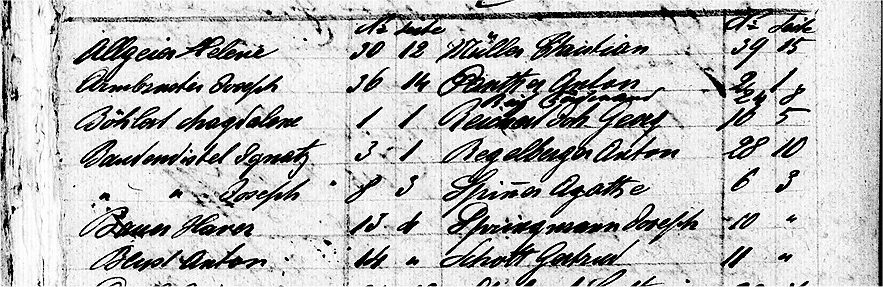 No Seite No Seite
Allgeier Helene 30 12 Müller Christian 39 15
Armbruster Joseph 36 14 Panther Anton 2 1
24 8
Böhlert Magdalene 1 1 Reichert Joh Georg 10 5
Bandendistel Ignatz 3 1 Regelberger Anton 28 10
" " Joseph 8 3 Spinner Agathe 6 3
Bauer Xaver 13 4 Springmann Joseph 10 "
Anton 14 " Schott Gertrud 11 "